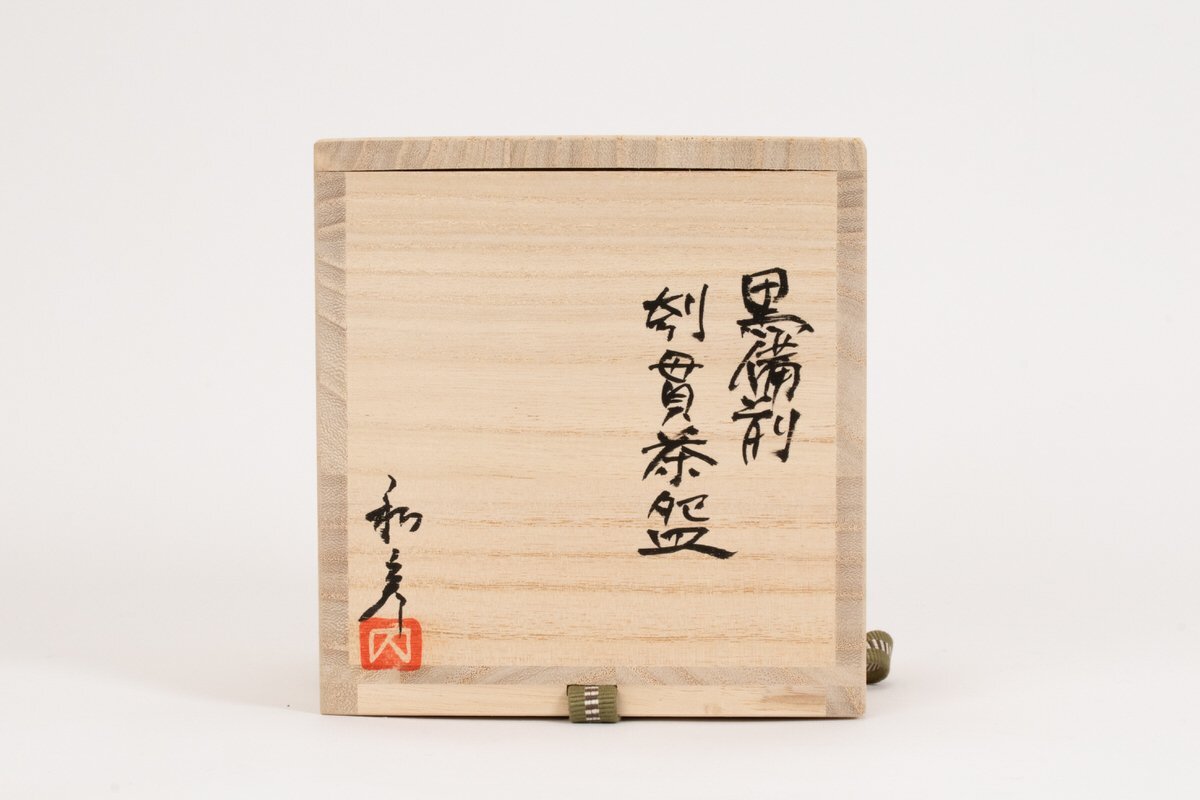 黒備前
刳貫茶盌
和彦